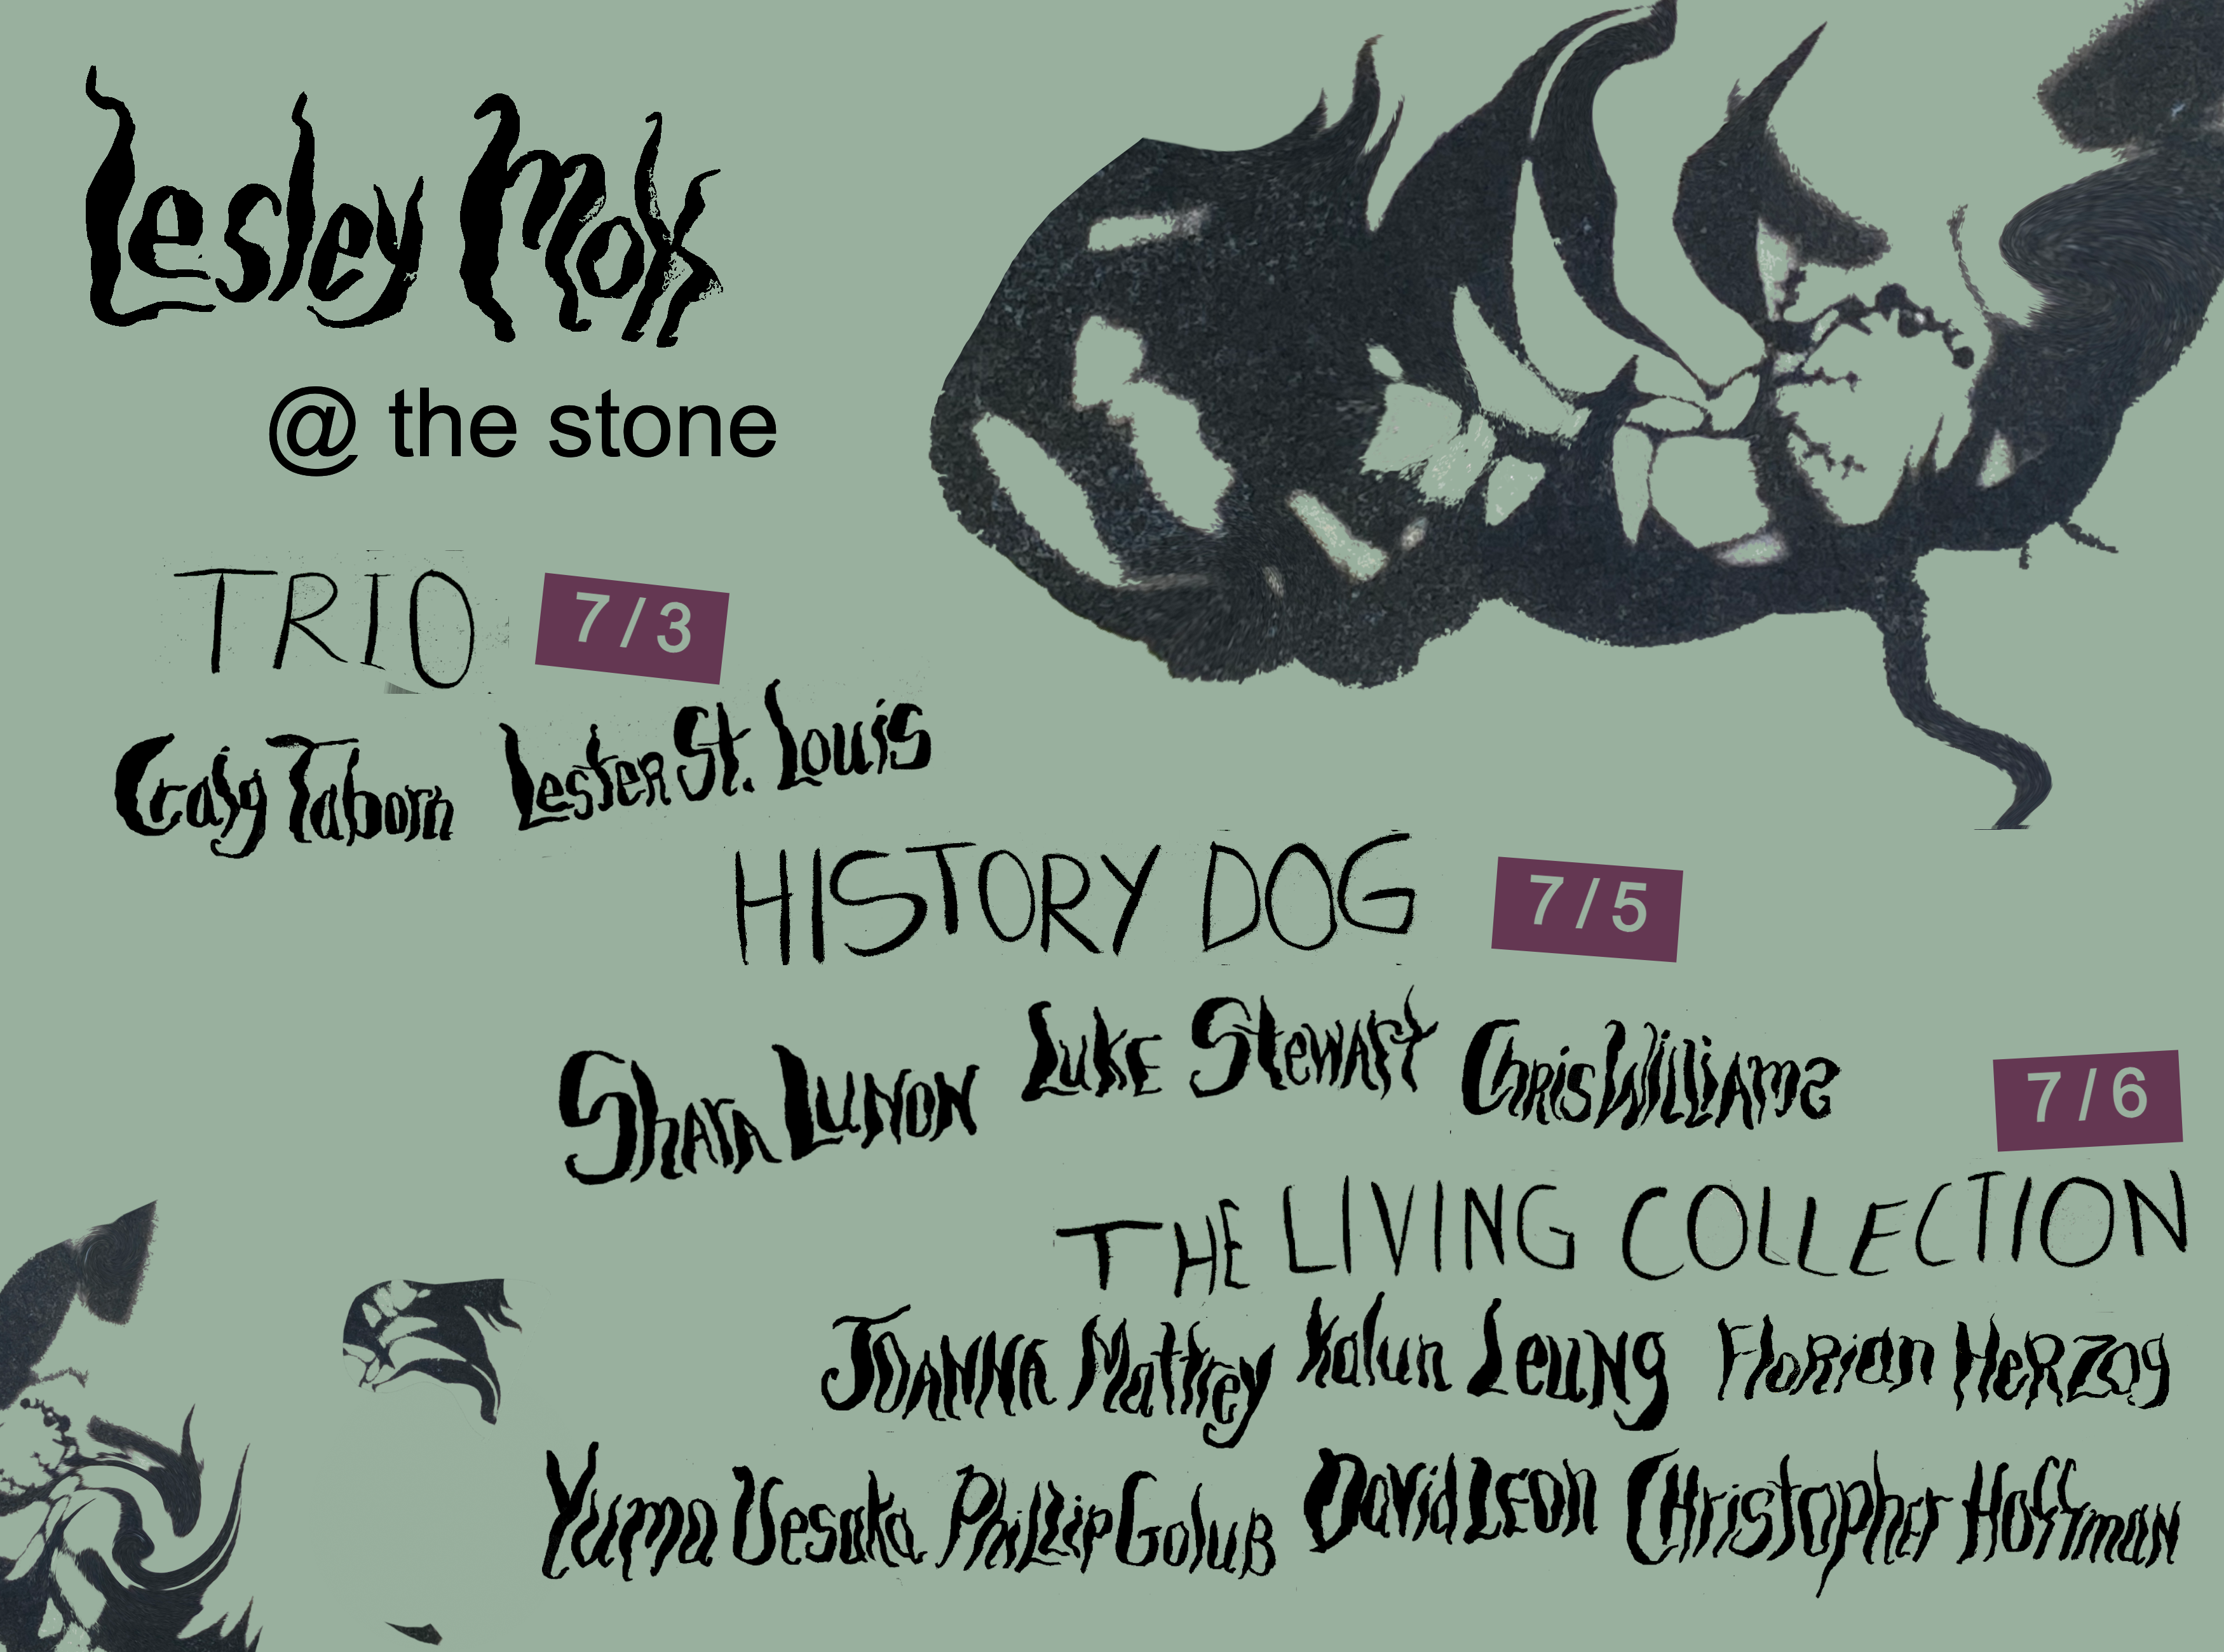 Lesley Mok
@ the stone
TRIO 7/3
Craig Taborn Lester St. Louis
HISTORY DOG 7/5
Shara Lunon Luke Stewart Chris Williams
7/6
THE LIVING COLLECTION
Joanna Mattrey Kalun Leung Florian Herzog
Yuma Uesaka Phillip Golub David Leon Christopher Hoffman